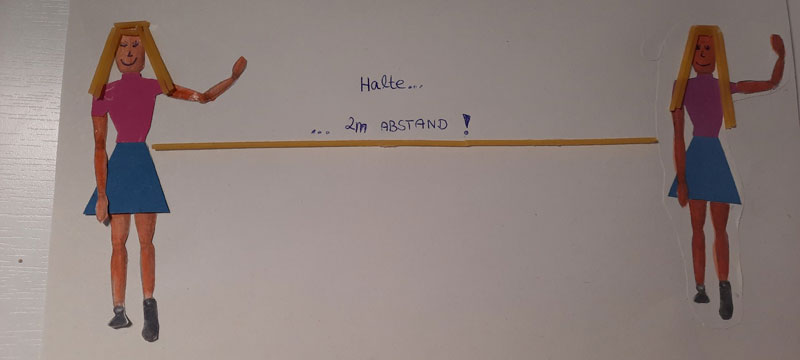 Halte...
... 2m ABSTAND !